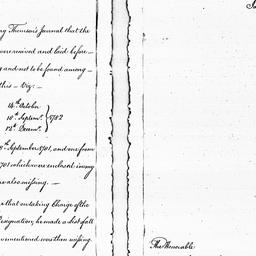 Thomson's Journal that the
were received and laid before
and not to be found among
this — Viz: —
14th October
10th Septemr. 1782
12th Decemr.
8th September 1781, and one from
1781 which were enclosed in my
also missing. —
that on taking Charge of the
Resignation, he made a list of all
mentioned was then missing.
The Honorable